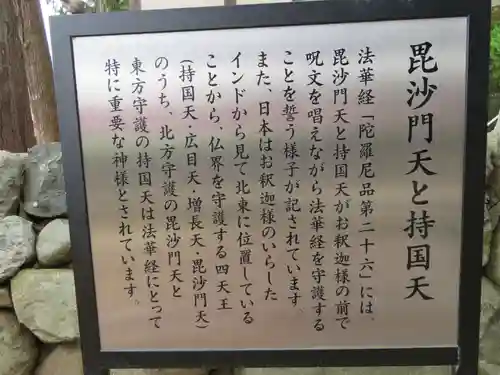 毘沙門天と持国天
法華経「陀羅尼品第二十六」には、
毘沙門天と持国天がお釈迦様の前で
呪文を唱えながら法華経を守護する
ことを誓う様子が記されています。
また、日本はお釈迦様のいらした
インドから見て北東に位置している
ことから、仏界を守護する四天王
（持国天・広目天・増長天・毘沙門天）
のうち、北方守護の毘沙門天と
東方守護の持国天は法華経にとって
特に重要な神様とされています。